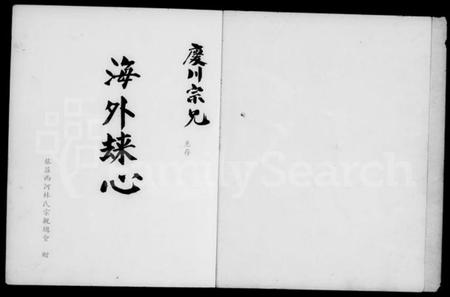 慶川宗兄
惠存
海外竦心
旅菲西河林氏宗親總會 贈
FamilySearch